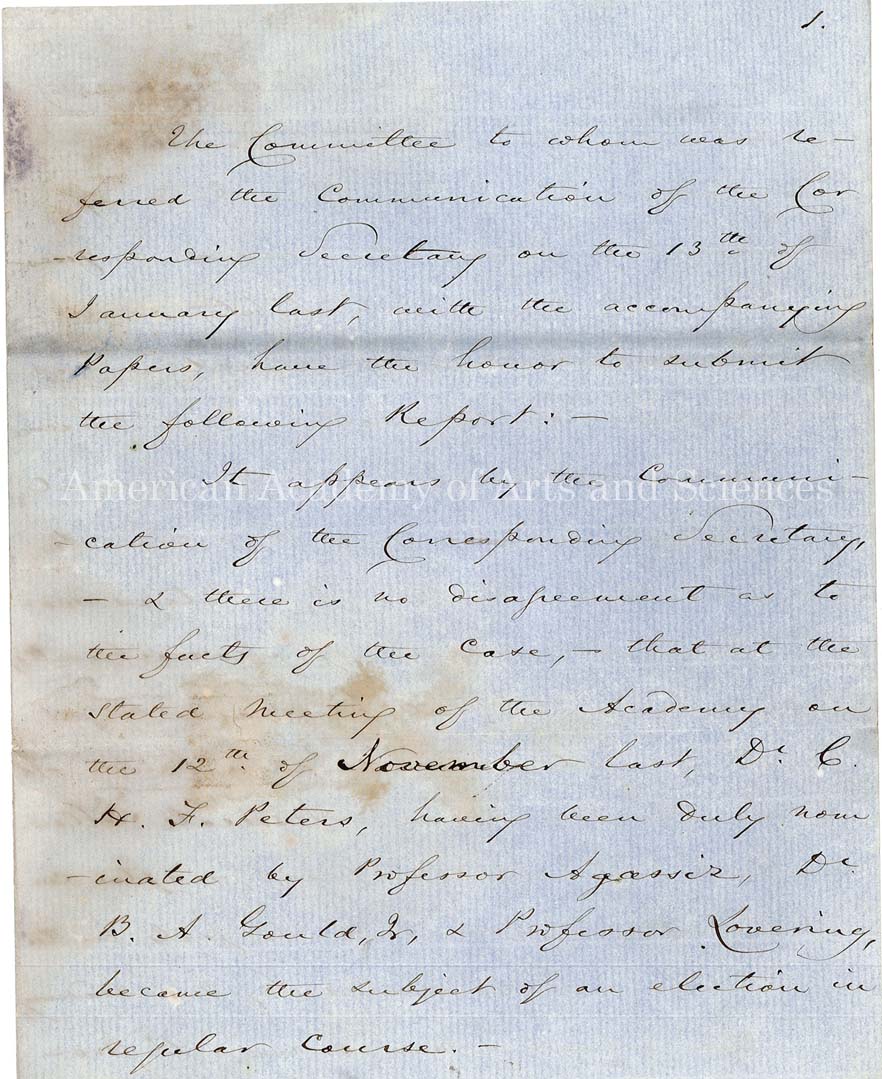 1.
The Committee to whom was re-
ferred the Communication of the Cor
-responding Secretary on the 13th of
January last, with the accompanying
Papers, have the honor to submit
the following Report: -
American Academy of Arts and Sciences
It appears by the Communi-
-cation of the Corresponding Secretary,
- & there is no disagreement as to
the facts of the Case, - that at the
stated Meeting of the Academy on
the 12th of November last, Dr. C.
H. F. Peters, having been duly nom
-inated by Professor Agassiz, Dr.
B. A. Gould, Jr, & Professor Lovering,
became the subject of an election in
regular Course. -